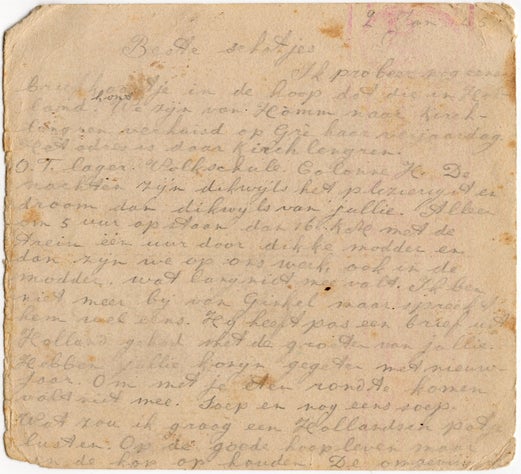 2 Jan 45
Beste schatjes
Ik probeer nog eens
briefkaartje in de hoop dat die in Hol-
land komt. We zijn van Hamm naar Kirch-
lengren verhuisd op Gré haar verjaardag.
Het adres is daar Kirchlengren.
O.T. lager. Volkschule. Colonne H. De
nachten zijn dikwijls het plezierigst en
droom dan dikwijls van jullie. Alleen
om 5 uur opstaan dan 16 K.M. met de
trein één uur door dikke modder en
dan zijn we op ons werk, ook in de
modder, wat lang niet me valt. Ik ben
niet meer bij van Ginkel maar spreek
hem wel eens. Hij heeft pas een brief uit
Holland gehad met de groeten van jullie.
Hebben jullie konijn gegeten met nieuw-
jaar. Om met je eten rondte komen
valt niet mee. Soep en nog eens soep.
Wat zou ik graag een Hollandsen pot
lusten. Op de goede hoop leven maar
de kop op houden. De omgeving